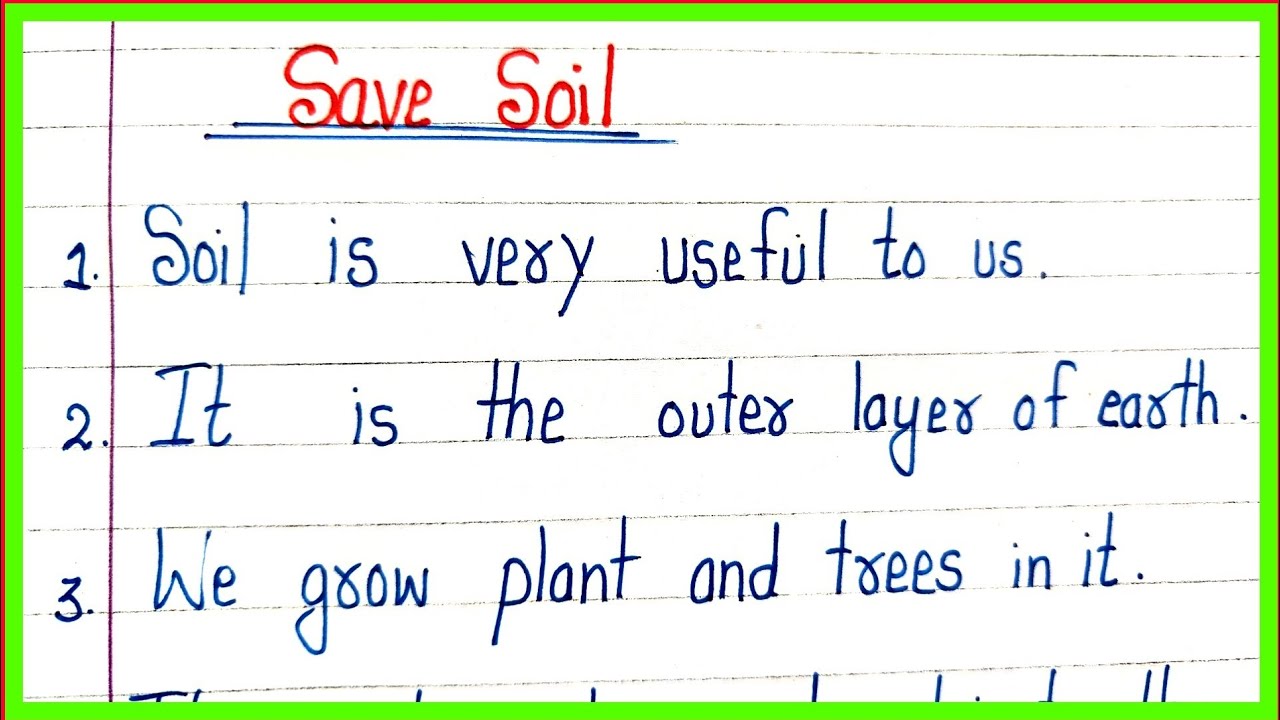 Save Soil
1. Soil is very useful to us.
2. It is the outer layer of earth.
3. We grow plant and trees in it.